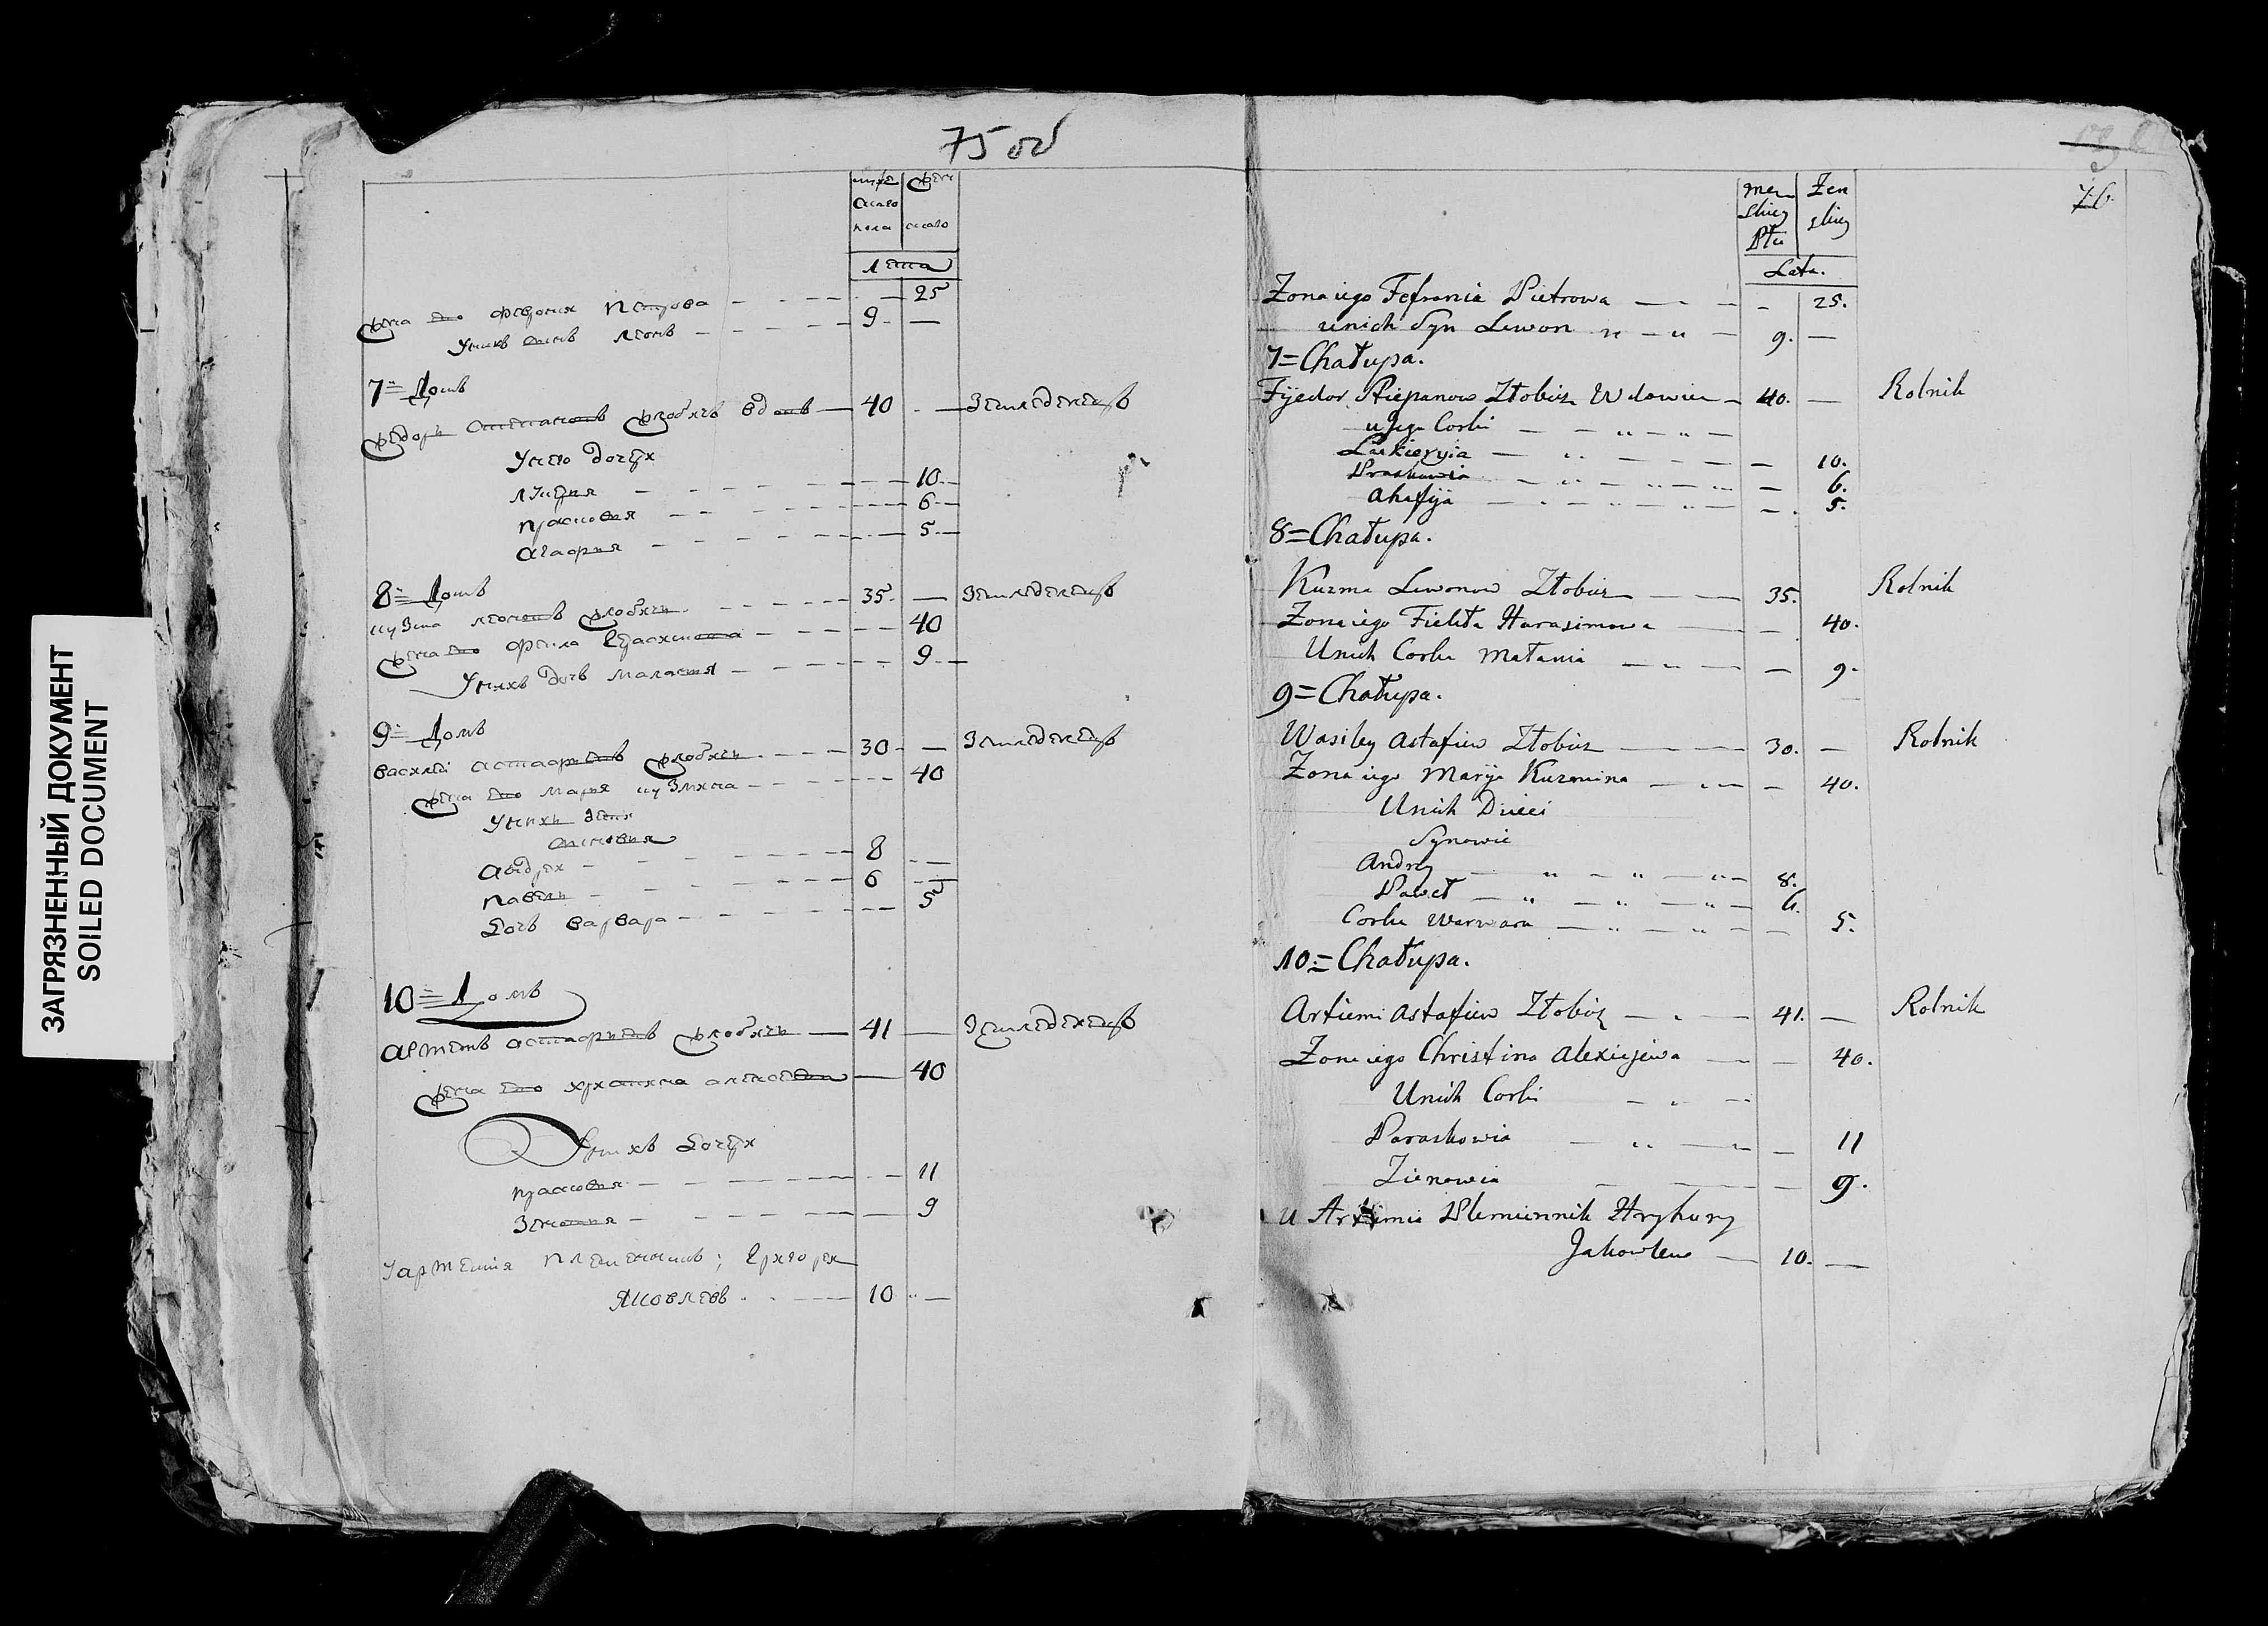 ЗАГРЯЗНЕННЫЙ ДОКУМЕНТ
SOILED DOCUMENT
75 об
муже скаго пола | жен скаго
лета
жена его федоня петрова — 25
У нихъ сынъ леонъ — 9 —
7= Домъ
федоръ степановъ жлобичъ вдовъ — 40 — земледелецъ
У него дочери
лукерия — 10
прасковия — 6
агафия — 5
8= Домъ
кузма леоновъ жлобичъ — 35 — земледелецъ
жена его — 40
У нихъ дочь маланя — 9
9= Домъ
василий астафиевъ жлобичъ — 30 — земледелецъ
жена его маря кузмина — 40
У нихъ дети
сыновия
андрей — 8 —
павелъ — 6 —
дочь варвара — 5
10= Домъ
артемъ астафиевъ жлобичъ — 41 — земледелецъ
жена его христина алексеева — 40
У нихъ дочери
прасковия — 11
зеновия — 9
У артемия племенникъ; григорей
яковлевъ — 10 —
76
Męzkiey Płci | Żenskiey
Lata.
Zona iego Fefronia Pietrowa — 25.
u nich Syn Lewon — 9. —
7= Chałupa.
Fijedor Stiepanow Złobicz Wdowiec — 40. — Rolnik
u Jego Corki
Łukieryia — 10.
Praskowia — 6.
Ahafija — 5.
8= Chałupa.
Kuzma Lewonow Złobicz — 35. Rolnik
Zona iego Fiekła Harasimowa — 40.
U nich Corka Małania — 9.
9= Chałupa.
Wasiley Astafiew Złobicz — 30. — Rolnik
Zona iego Maryja Kuzmina — 40.
U nich Dzieci
Synowie
Andrey — 8.
Paweł — 6.
Corka Warwara — 5.
10= Chałupa.
Artiemi Astafiew Złobicz — 41. — Rolnik
Zona iego Christina Alexiejewa — 40.
U nich Corki
Paraskowia — 11
Zienowia — 9.
U Artiemia Plemiennik Hryhory
Jakowlew — 10. —